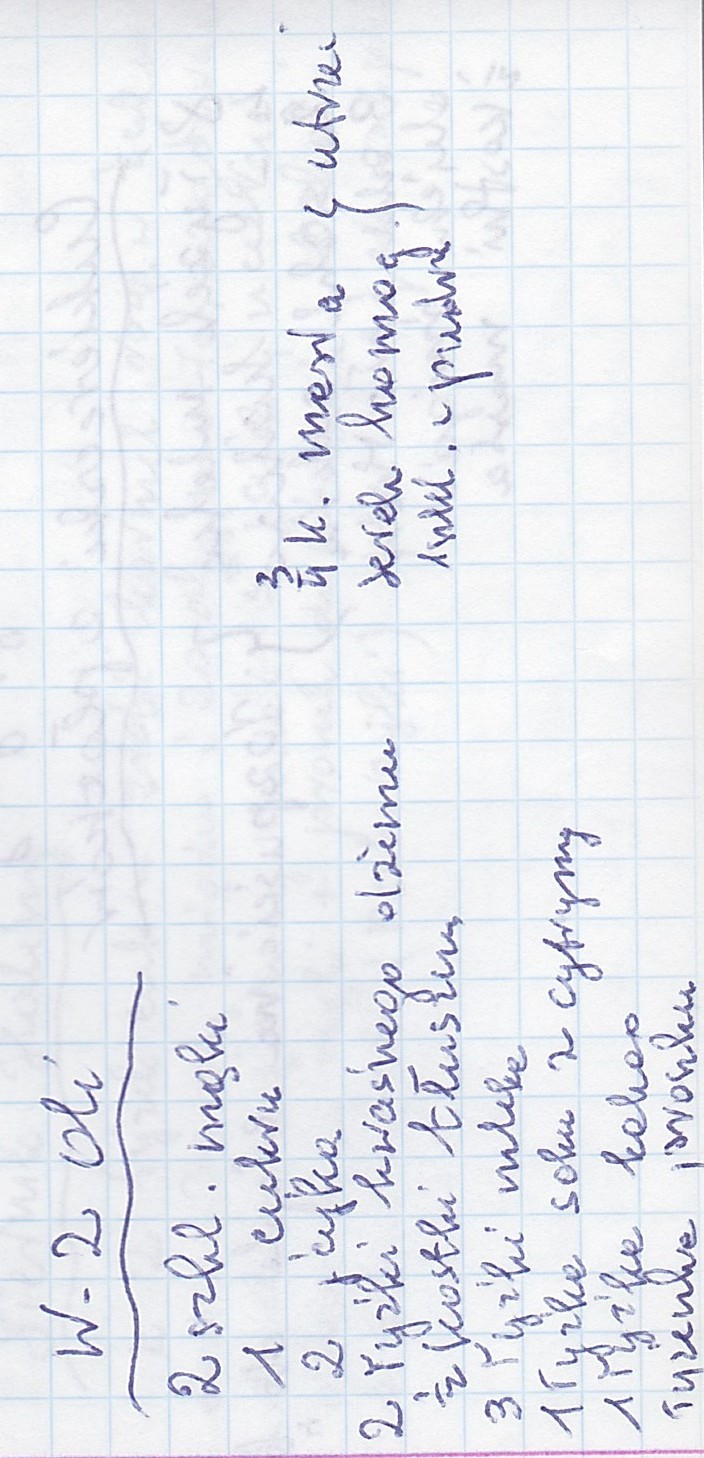 W-2 Oli
2 szkl. mąki
1 cukru
2 jajka
2 łyżki kwaśnego dżemu
½ kostki tłuszczu
3 łyżki mleka
1 łyżka soku z cytryny
1 łyżka kakao
łyżeczka proszku
¾ k. masła } utrzeć
serek homog.
1 szkl. c. pudru